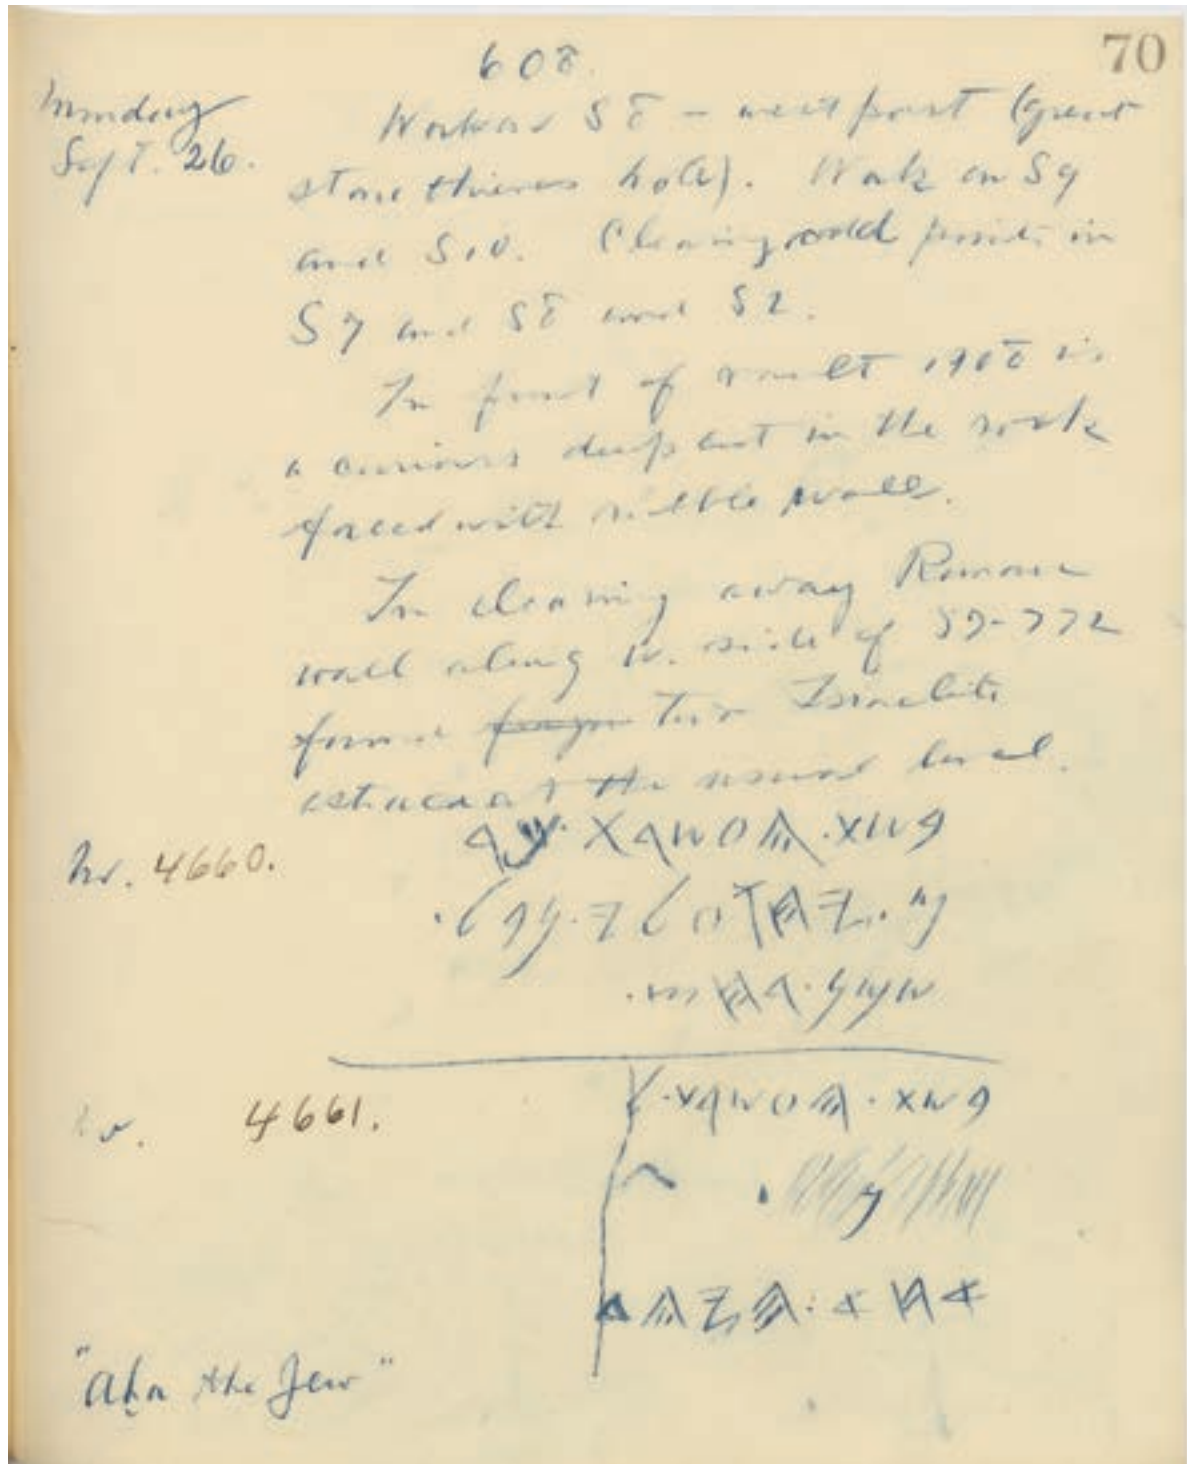 70
608.
Monday
Sept. 26.
Work on S8 – west part (great
stone thieves hole). Work on S9
and S10. Clearing odd points in
S7 and S8 and S2.
In front of vault 1908 is
a curious deep cut in the rock
faced with rubble walls.
In clearing away Roman
wall along W. side of S7-772
found two Israelite
ostraca at the usual level.
Nr. 4660.
𐤁𐤔𐤕.𐤄𐤏𐤔𐤓𐤕.𐤊𐤓
𐤌.𐤉𐤇𐤅𐤏𐤋𐤉.𐤍𐤁𐤋.
𐤔𐤌𐤍.𐤓𐤇𐤑.
Nr. 4661.
𐤁𐤔𐤕.𐤄𐤏𐤔𐤓𐤕.𐤋
𐤀𐤇𐤀:𐤄𐤉𐤄𐤃
"Aḥa the Jew"